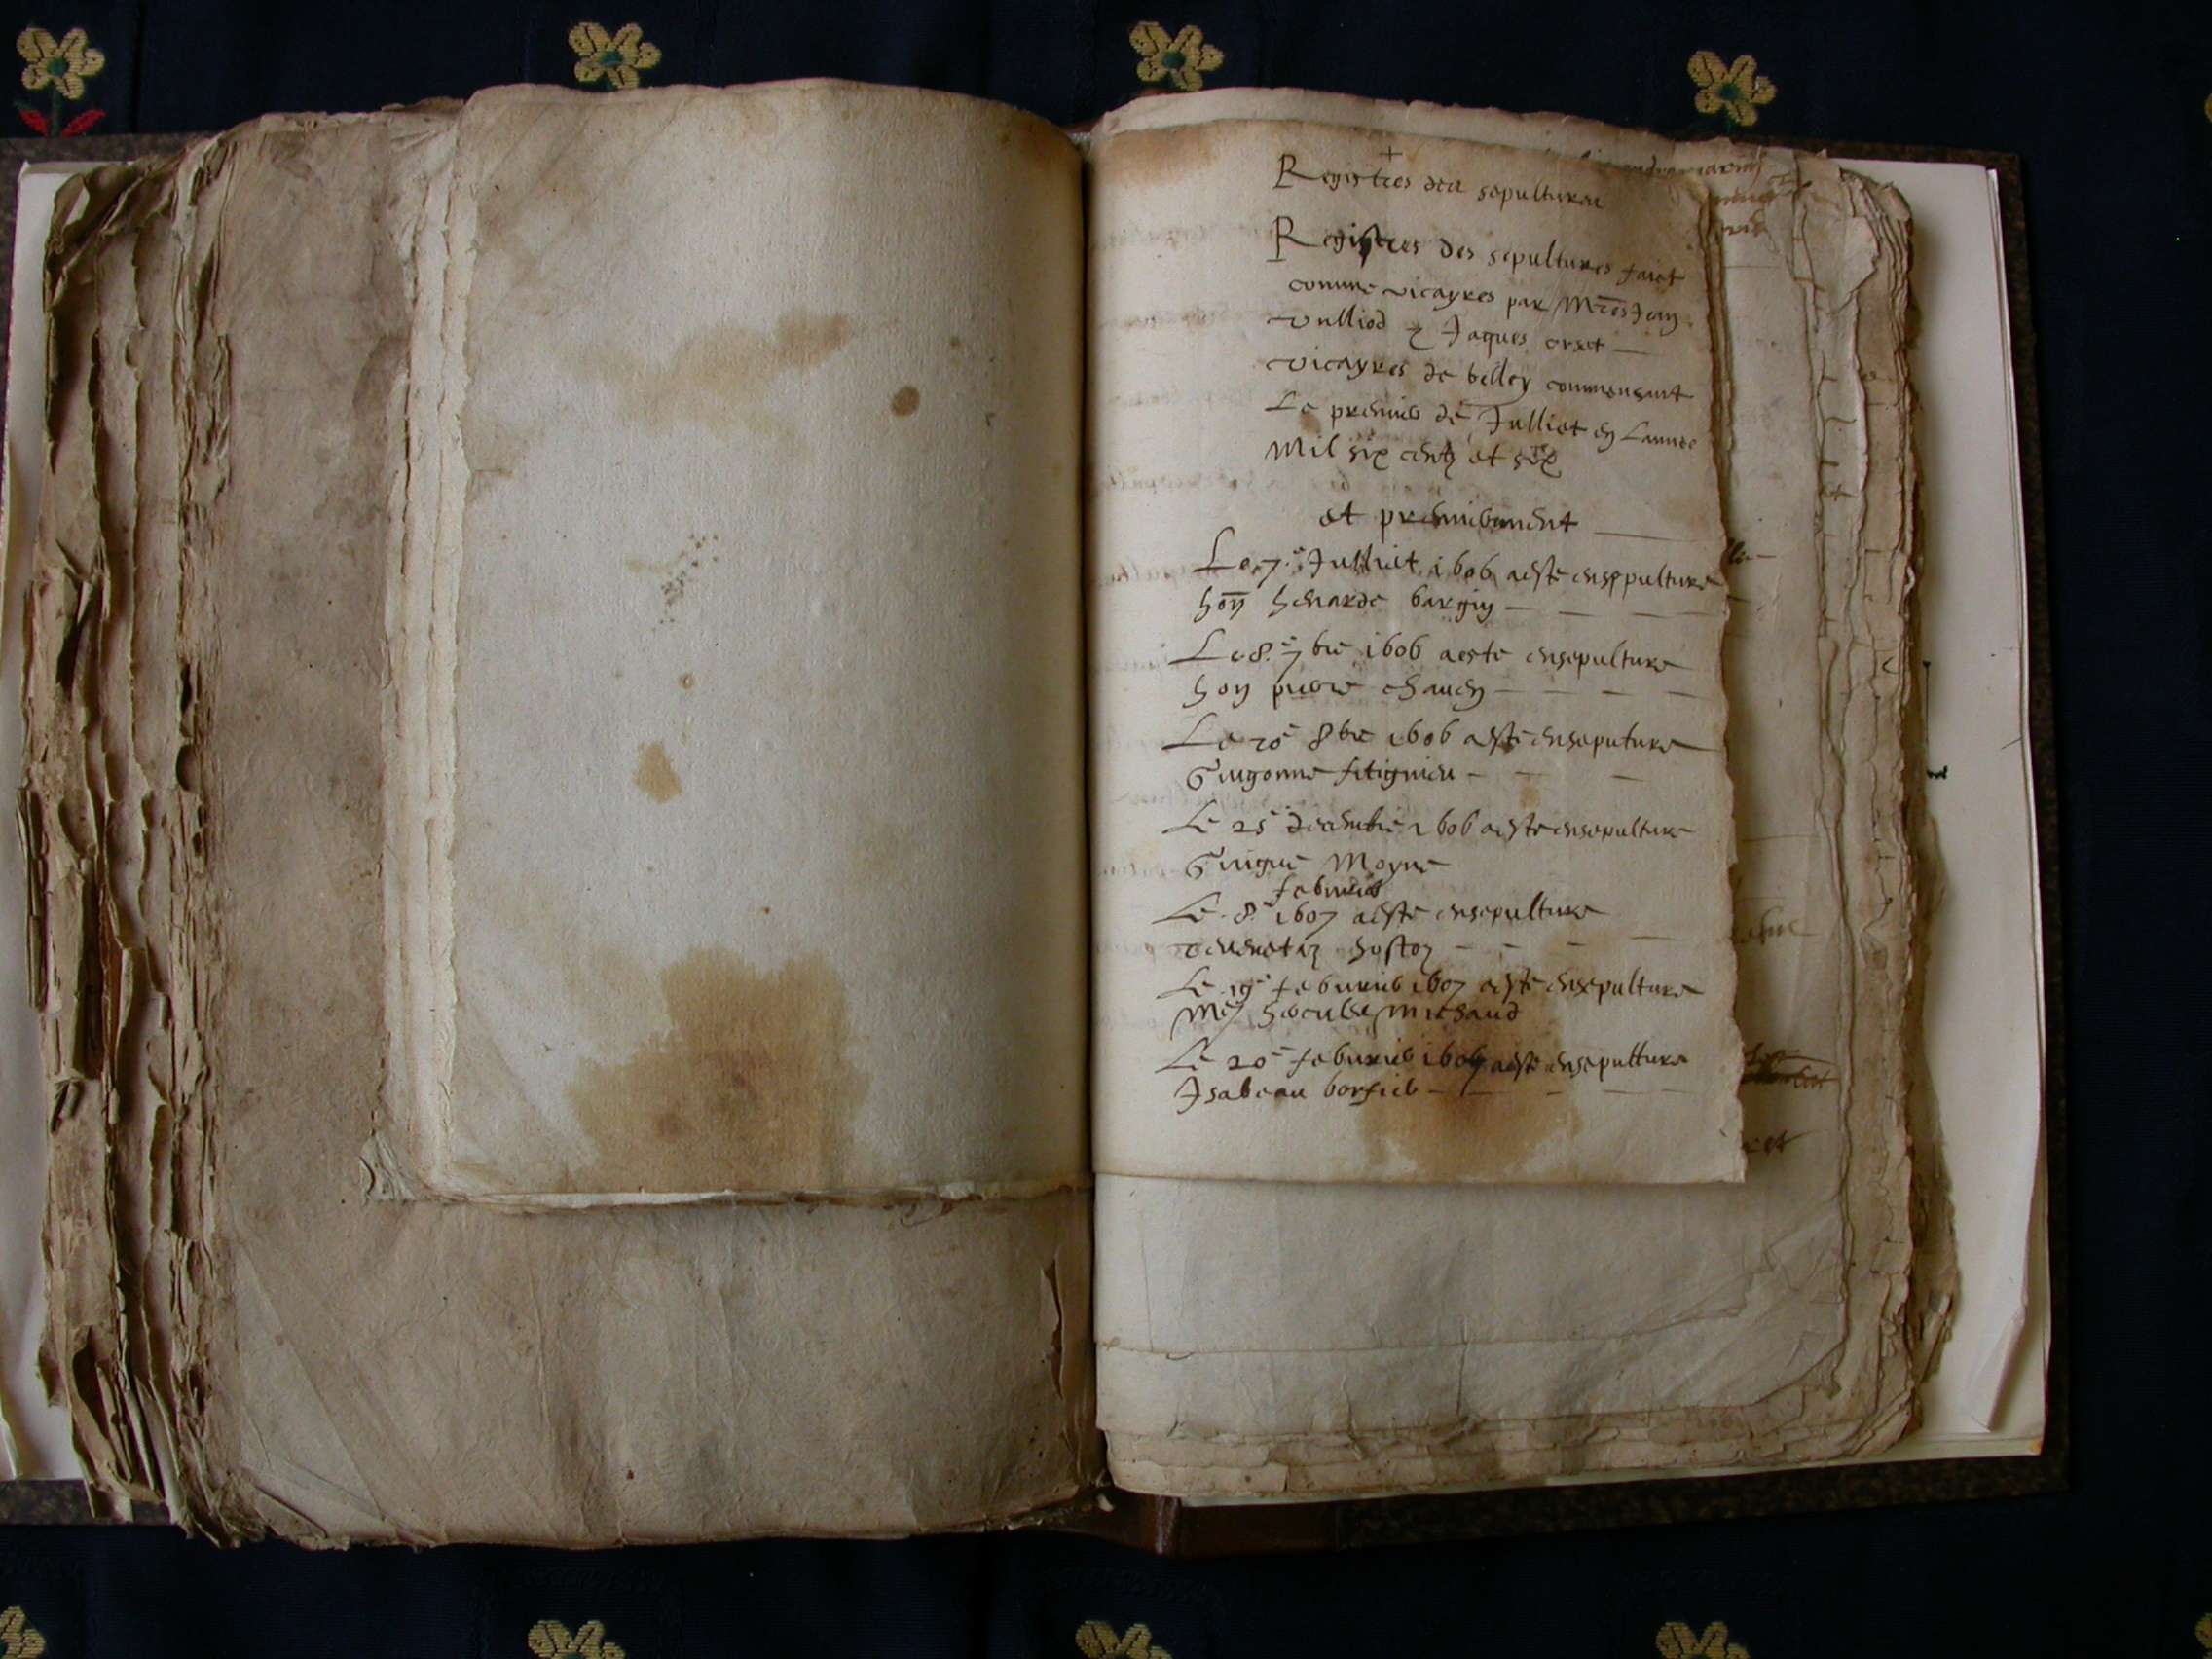 Registres des sepultures
Registres des sepultures faict
comme vicayres par Mres Jean
vulliod & Jaques orset
vicayres de belley commensant
Le premier de Julliet en Lannee
Mil six centz et six
et premierement
Le 7e Julliet 1606 a este ensepulture
hon
Le 8e 7bre 1606 a este ensepulture
hon pierre
Le 20e 8bre 1606 a este enseputure
Guigonne fitignieu
Le 25e decembre 1606 a este ensepulture
Guigue Moyne
febvrier
Le 8e 1607 a este ensepulture
Le 19e febvrier 1607 a este ensepulture
hercules michaud
Le 20e febvrier 1607 a este ensepulture
Isabeau borfier